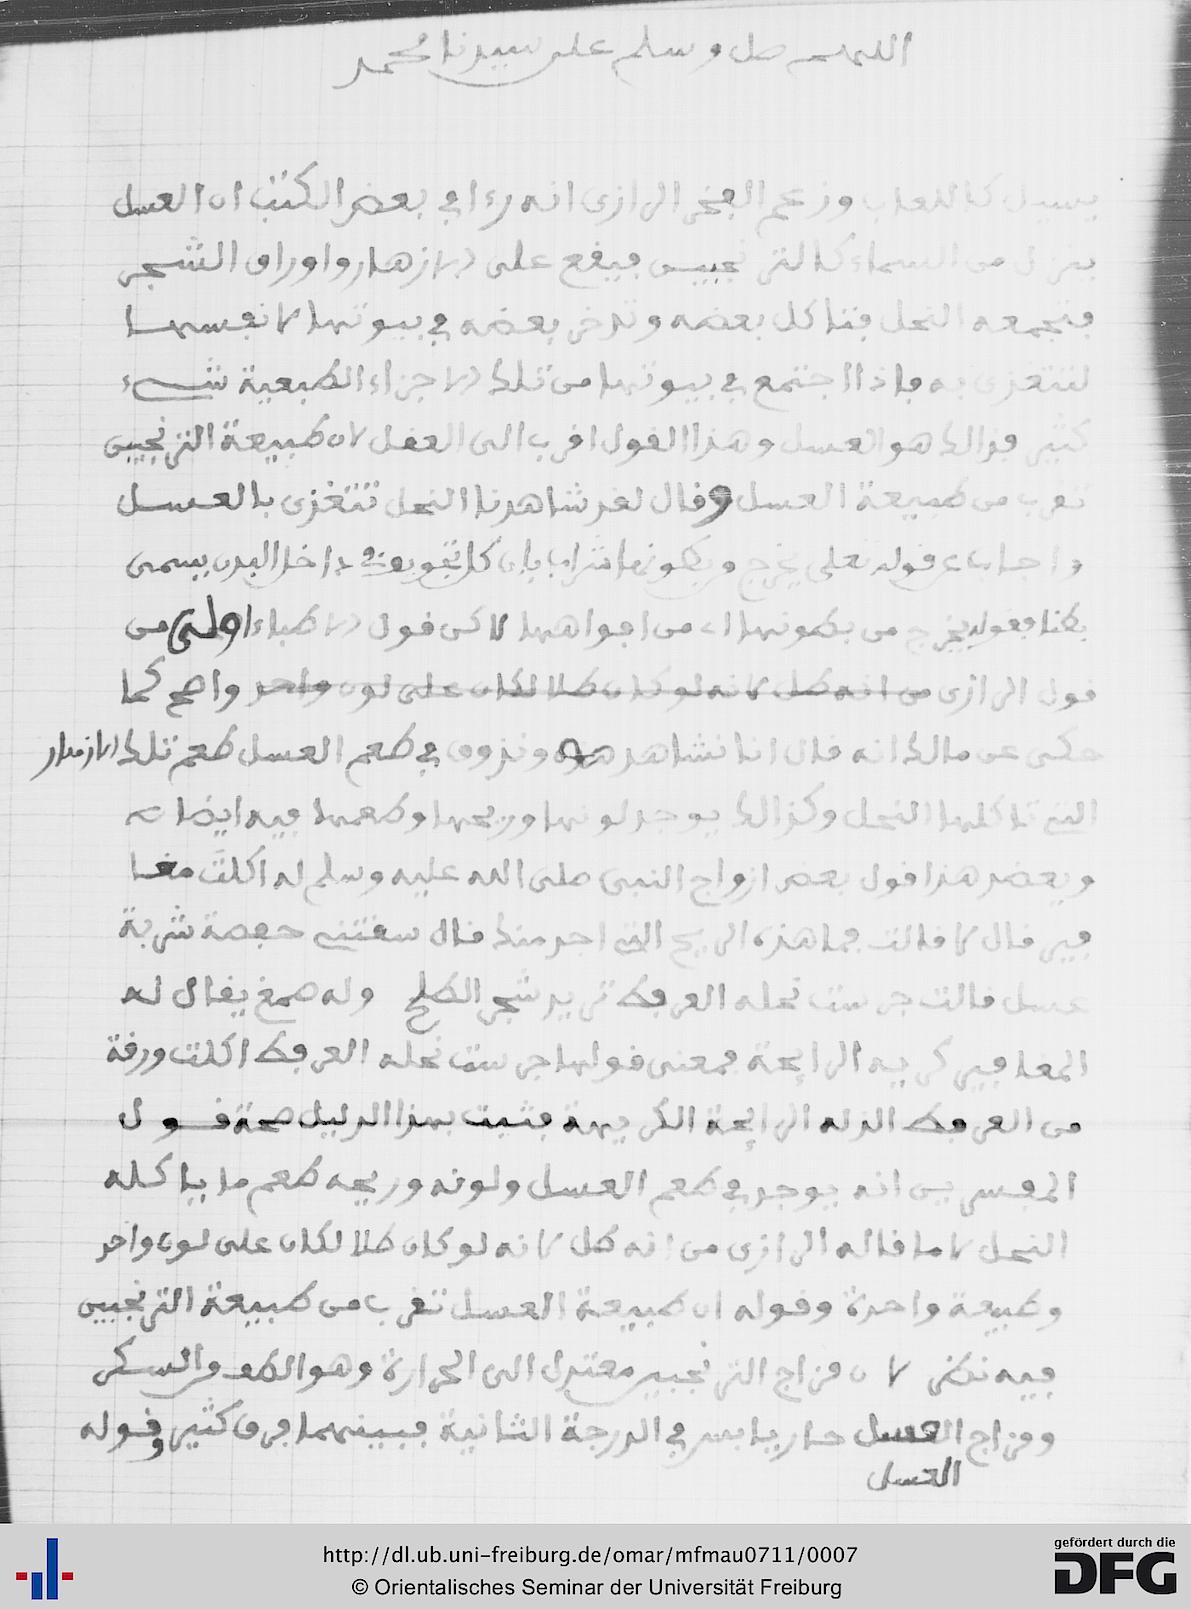 اللهم صل وسلم على سيدنا محمد
يسيل كاللعاب وزعم الفخر الرازي انه رءا في بعض الكتب ان العسل
ينزل من السماء كالترنجبين فيقع على الازهار واوراق الشجر
فتجمعه النحل فتاكل بعضه وتدخر بعضه في بيوتها لانفسها
لتتغذى به فاذا اجتمع في بيوتها من تلك الاجزاء الطبعية شيء
كثير فذالك هو العسل وهذا القول اقرب الى العقل لان طبيعة الترنجبين
تقرب من طبيعة العسل وقال لقد شاهدنا النحل تتغذى بالعسل
واجاب عن قوله تعلى يخرج من بطونها شراب بان كل تجويف في داخل البدن يسمى
بطنا فقوله يخرج من بطونها اي من افواهها لاكن قول الاطباء اولى من
قول الرازي من انه طل لانه لو كان طلا لكان على لون واحد واضح كما
حكى عن مالك انه قال انا نشاهد ونذوق في طعم العسل طعم تلك الازهار
التي تاكلها النحل وكذالك يوجد لونها وريحها وطعمها فيه ايضا
ويعضد هذا قول بعض ازواج النبي صلى الله عليه وسلم له اكلت مغا
فير قال لا قالت فما هذه الريح التي اجد منك قال سقتني حفصة شربة
عسل قالت جرست نحله العرفط تريد شجر الطلح وله صمغ يقال له
المغافير كريه الرايحة فمعنى قولها جرست نحله العرفط اكلت ورقة
من العرفط الذي له الرايحة الكريهة فثبت بهذا الدليل صحة قول
المفسرين انه يوجد في طعم العسل ولونه وريحه طعم ما ياكله
النحل لا ما قاله الرازي من انه طل لانه لو كان طلا لكان على لون واحد
وطبيعة واحدة وقوله ان طبيعة العسل تقرب من طبيعة الترنجبين
فيه نظر لان مزاج الترنجبين معتدل الى الحرارة وهو الطف من السكر
ومزاج العسل حار يابس في الدرجة الثانية فبينهما فرق كثير وقوله
العسل
http://dl.ub.uni-freiburg.de/omar/mfmau0711/0007
© Orientalisches Seminar der Universität Freiburg
gefördert durch die
DFG